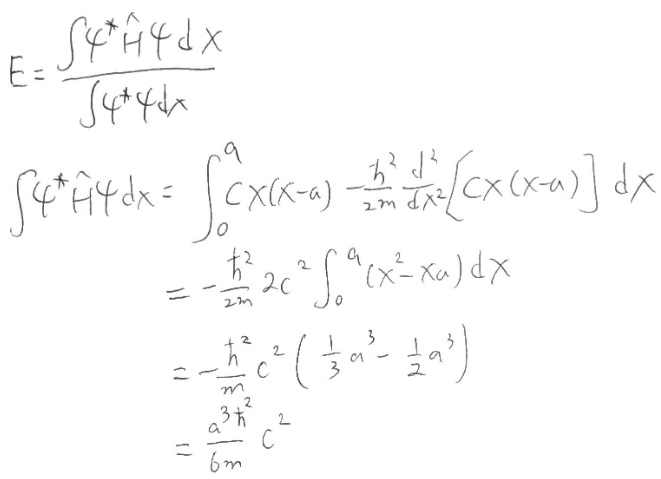 E = ∫ψ*Ĥψdx / ∫ψ*ψdx
∫ψ*Ĥψdx = ∫₀ᵃ Cx(x-a) -ħ²/2m d²/dx² [Cx(x-a)] dx
= -ħ²/2m 2c² ∫₀ᵃ (x²-xa)dx
= -ħ²/m c² (1/3 a³ - 1/2 a³)
= a³ħ²/6m c²